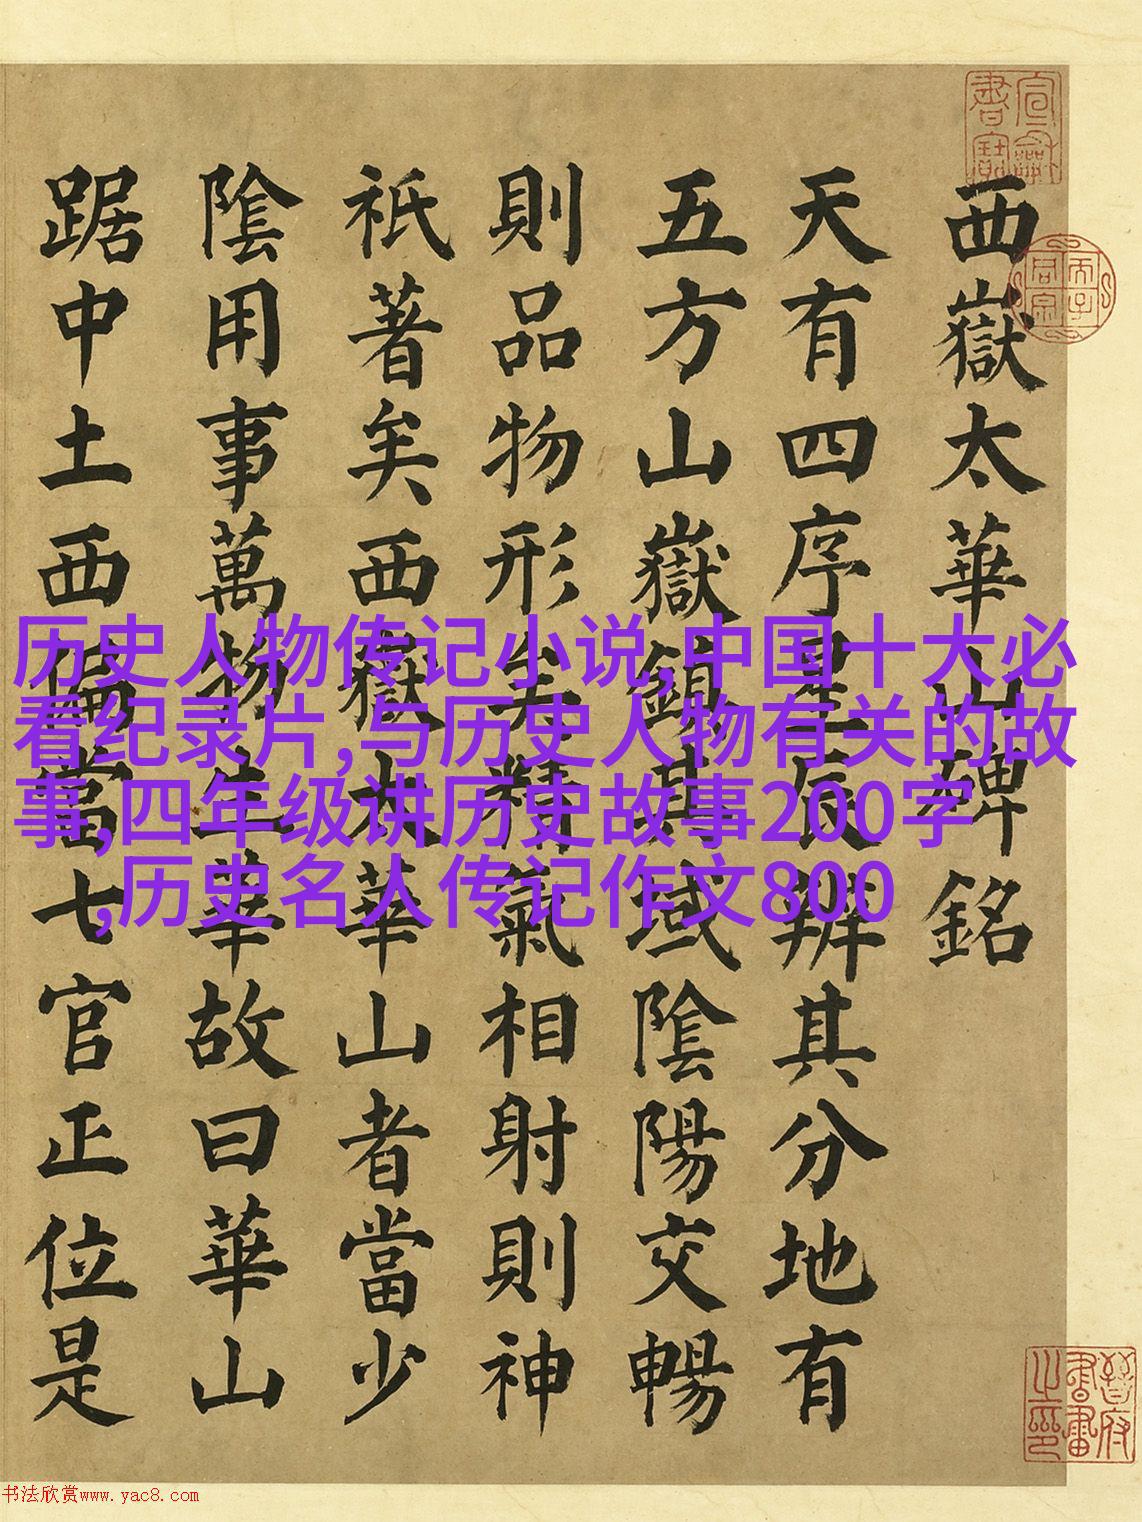 西嶽太華山碑銘
天有四序星辰辨其分地有
五方山嶽鎮其域陰陽交暢
則品物形生精氣相射則神
祇著矣西嶽太華山者當少
陰用事萬物生華故曰華山
踞中土西偏當七官正位是
历史人物传记小说,中国十大必
看纪录片,与历史人物有关的故
事,四年级讲历史故事200字
,历史名人传记作文800
晉府書畫之印
书法欣赏www.yac8.com